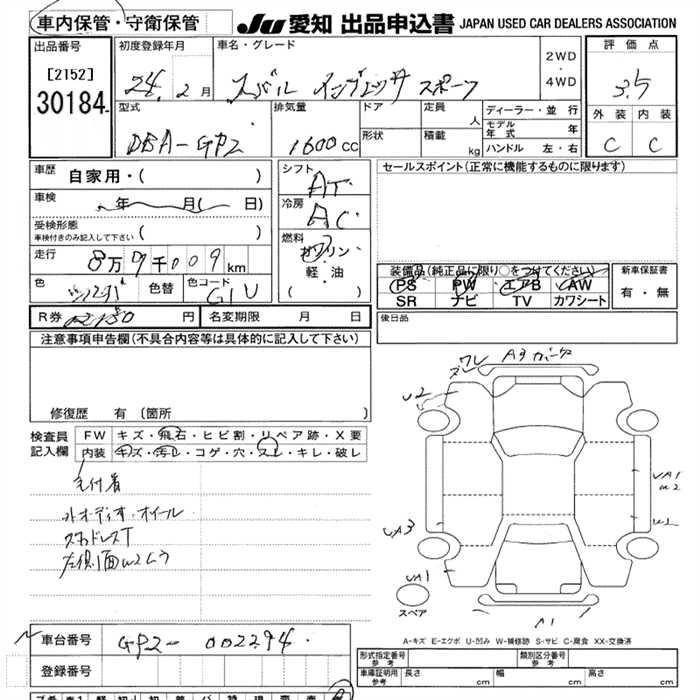 車内保管・守衛保管
JU 愛知 出品申込書 JAPAN USED CAR DEALERS ASSOCIATION
出品番号 初度登録年月 車名・グレード 2WD ・ 4WD 評価点
[2152] 24年 2月 スバル インプレッサ スポーツ 3.5
30184 型式 排気量 ドア 定員 人 ディーラー・並行 外装 内装
DBA-GP2 1600cc 形状 積載 kg モデル年式 年 C C
ハンドル 左・右
車歴 自家用・( ) シフト AT セールスポイント(正常に機能するものに限ります)
車検 年 月( 日) 冷房 AC
受検形態
車検付きのみ記入して下さい ( )
燃料 ガソリン・軽油 ( )
走行 8万7千009km 装備品(純正品に限り○をつけてください) 新車保証書
色 色替 色コード G1U PS PW エアB AW 有・無
SR ナビ TV カワシート
R券 円 名変期限 月 日 後日品
注意事項申告欄(不具合内容等は具体的に記入して下さい)
修復歴 有(箇所 )
検査員記入欄 FW キズ・飛石・ヒビ割・リペア跡・X要
内装 キズ・汚レ・コゲ・穴・スレ・キレ・破レ
ワレ
U2
UA1
W2
UA3
UA1
スペア
A1
オーディオ
スタッドレスT
A-キズ E-エクボ U-凹み W-補修跡 S-サビ C-腐食 XX-交換済
車台番号 GP2-002294
登録番号
形式指定番号 参考 類別区分番号 参考
車庫証明用 参考 長さ cm 幅 cm 高さ cm